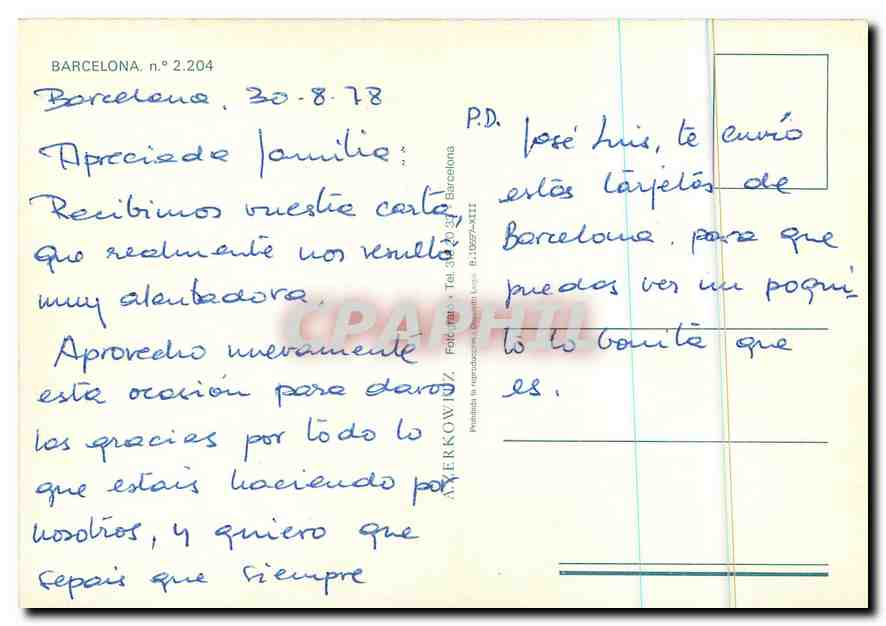 BARCELONA. n.º 2.204
Barcelona, 30-8-78
Apreciada familia:
Recibimos vuestra carta,
que realmente nos resultó
muy alentadora.
Aprovecho nuevamente
esta ocasión para daros
las gracias por todo lo
que estais haciendo por
nosotros, y quiero que
sepais que siempre
A. ZERKOWITZ. Fotógrafo • Tel. Barcelona
Prohibida la reproducción • Depósito Legal B.10697-XIII
P.D. José Luis, te envío
estas tarjetas de
Barcelona, para que
puedas ver un poqui-
to lo bonita que
es.
CPAPHIL